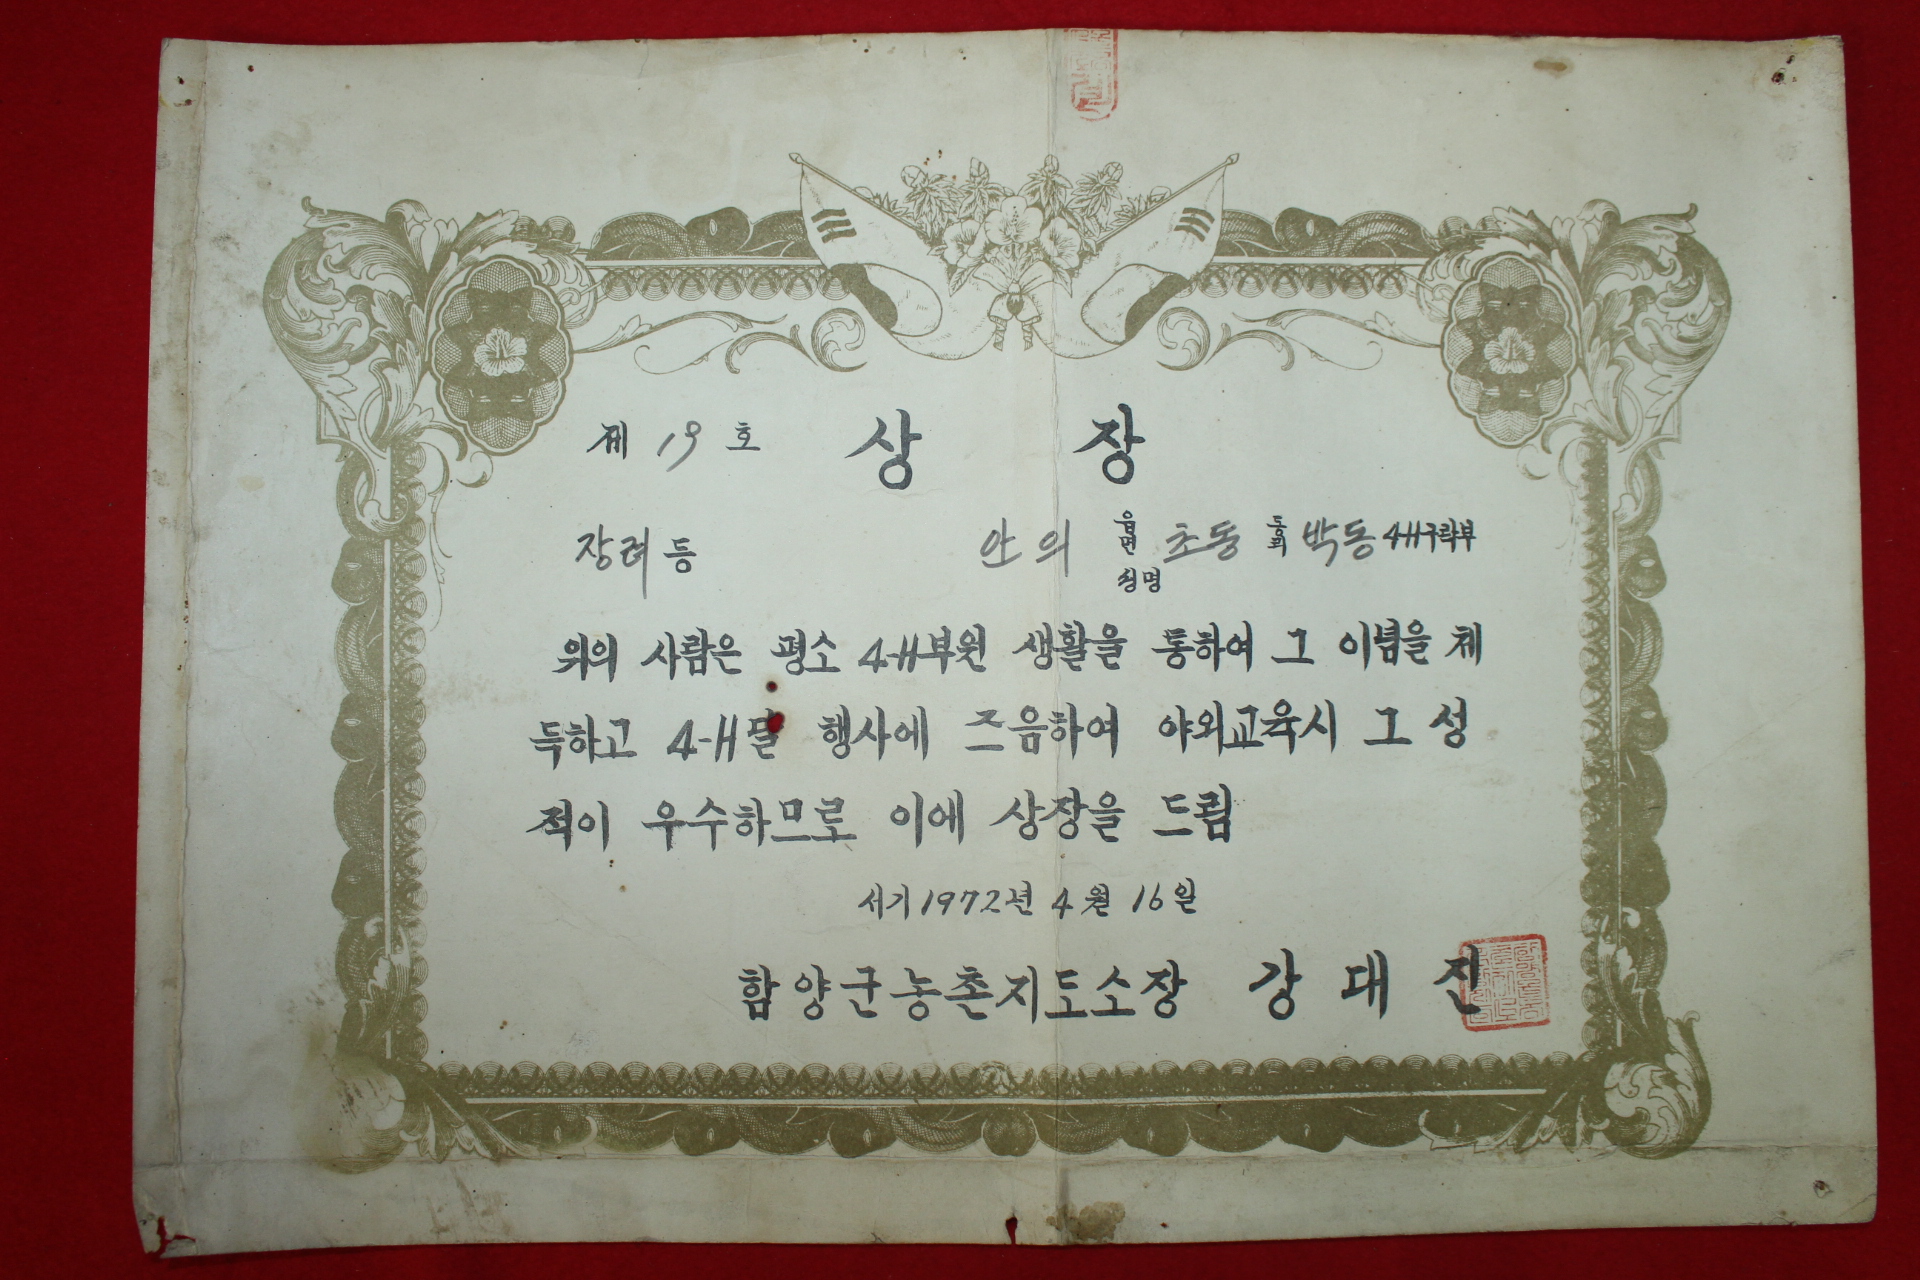 제 19 호 상 장
장려등 안의 읍면 초동 동리 박동 4-H구락부
성명
위의 사람은 평소 4-H부원 생활을 통하여 그 이념을 체
득하고 4-H달 행사에 즈음하여 야외교육시 그 성
적이 우수하므로 이에 상장을 드림
서기 1972년 4월 16일
함양군농촌지도소장 강 대 진